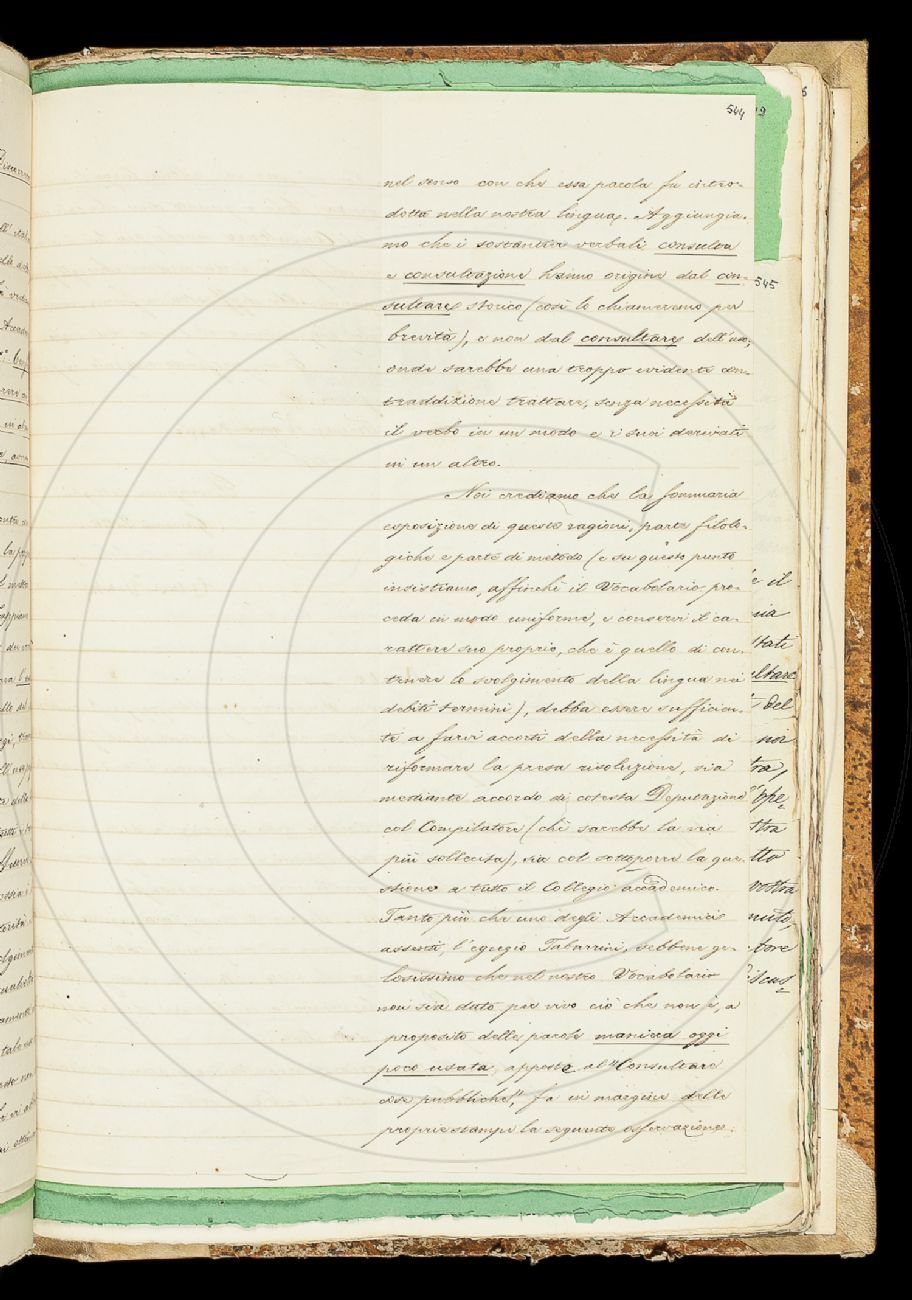 544
nel senso con che essa parola fu intro-
dotta nella nostra lingua. Aggiungia-
mo che i sostantivi verbali consulta
e consultazione hanno origine dal con-
sultare storico (così lo chiameremo per
brevità), e non dal consultare dell'uso,
onde sarebbe una troppo evidente con-
traddizione trattare, senza necessità
il verbo in un modo e i suoi derivati
in un altro.
Noi crediamo che la sommaria
esposizione di queste ragioni, parte filolo-
giche e parte di metodo (e su questo punto
insistiamo, affinchè il Vocabolario pro-
ceda in modo uniforme, e conservi il ca-
rattere suo proprio, che è quello di con-
tenere lo svolgimento della lingua nei
debiti termini), debba essere sufficien-
te a farvi accorti della necessità di
riformare la presa risoluzione, sia
mediante accordo di cotesta Deputazione
col Compilatore (che sarebbe la via
più sollecita), sia col sottoporre la que-
stione a tutto il Collegio accademico.
Tanto più che uno degli Accademici
assenti, l'egregio Tabarrini, sebbene ge-
losissimo che nel nostro Vocabolario
non sia dato per vivo ciò che non è, a
proposito delle parole maniera oggi
poco usata, apposte al "Consultare
cose pubbliche", fa in margine delle
proprie stampe la seguente osservazione:
545
il
sia
ltare
del
noi
tra,
ope-
tra
tto
vostra
nuto,
tore